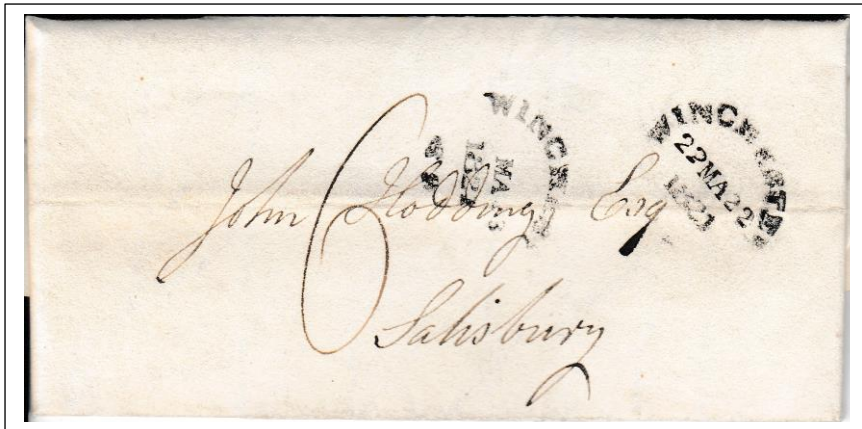 WINCHESTER
22MA22
1821
WINCHESTER
MA
182
6
John Hodding Esq
Salisbury